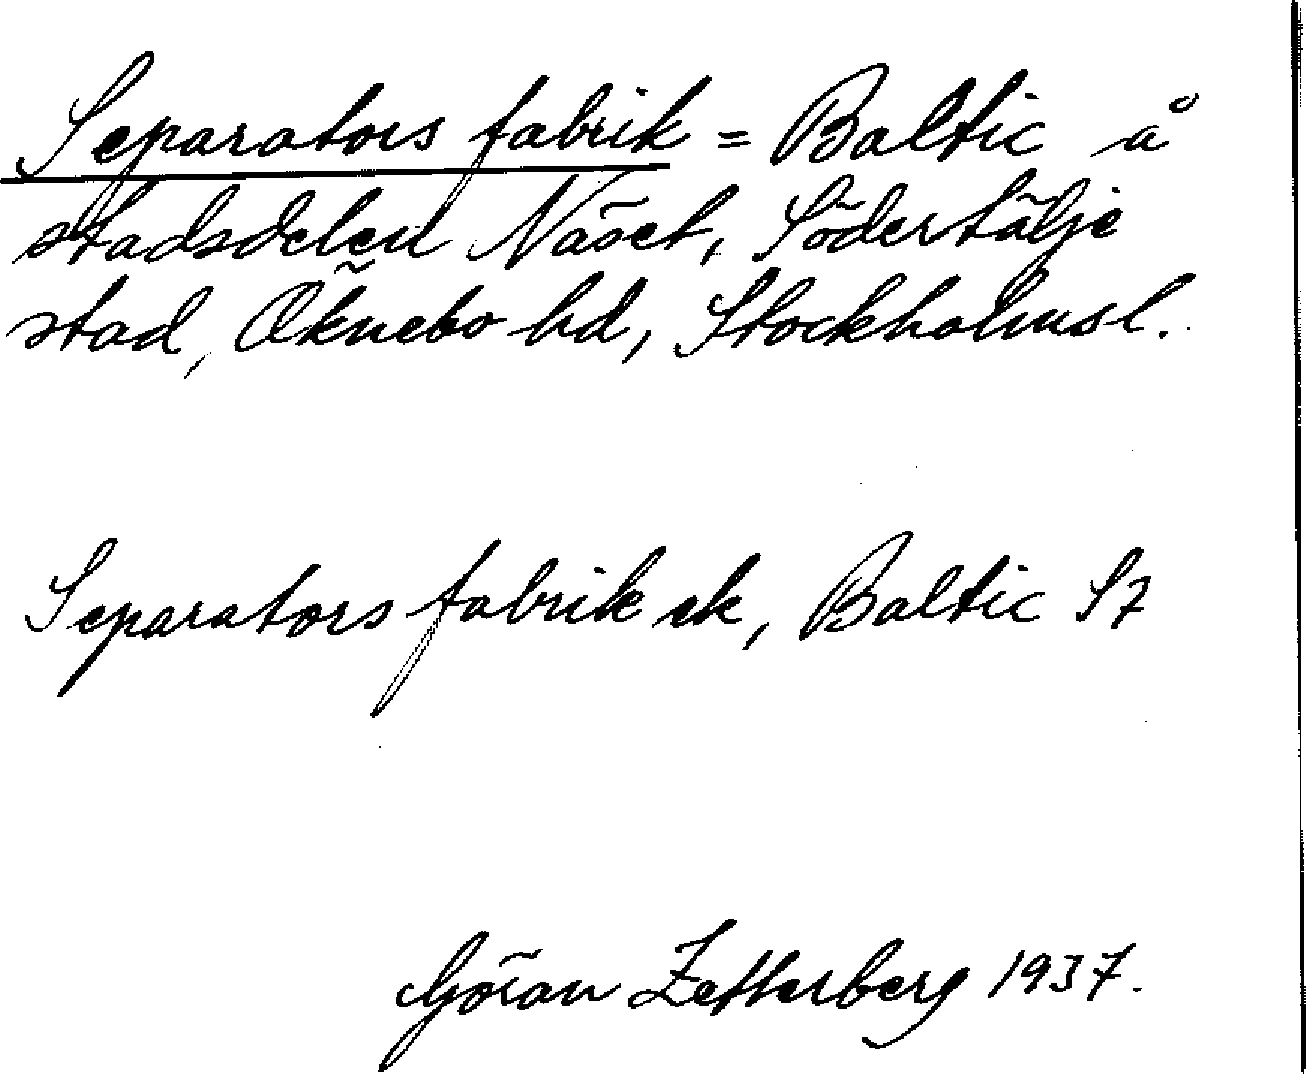 Separators fabrik = Baltic å
stadsdelen Näset, Södertälje
stad, Öknebo hd, Stockholmsl.
Separators fabrik ek, Baltic
Göran Zetterberg 1937.